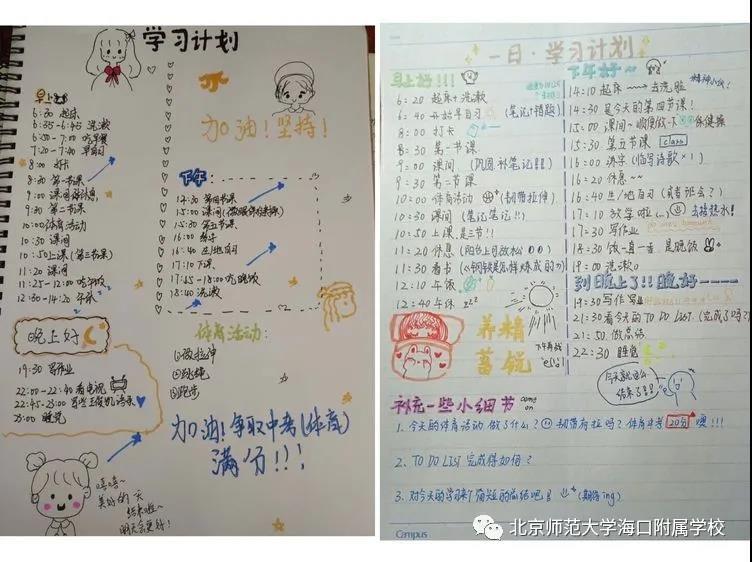 学习计划
加油!坚持!
早上
6:30 起床
6:35-6:45 洗漱
6:50-7:00 吃早餐
7:20-7:40 早自习
8:00 打卡
8:30 第一节课
9:00 课间休息
9:30 第二节课
10:00 体育活动
10:30 课间
10:50 上课(第三节课)
11:20 课间
11:25-12:00 吃午饭
12:30-14:20 午休
下午
14:30 第四节课
15:00 课间(做眼保健操)
15:30 第五节课
16:00 练字
16:40 生/地自习
17:10 下课
17:45-18:00 吃晚饭
18:40 洗漱
晚上好
19:30 写作业
22:00-22:40 看电视
22:45-23:00
23:00 睡觉
体育活动:
①做拉伸
②跳绳
③跑步
加油!争取中考(体育)
满分!!!
嘻嘻~
美好的一天
结束啦~
明天会更好!
一日·学习计划
早上好!!!
6:20 起床+洗漱
6:40 开始早自习(笔记+错题)
8:00 打卡
8:30 第一节课
9:00 课间(巩固补笔记!!!)
9:30 第二节课
10:00 体育活动(韧带拉伸)
10:30 课间(笔记笔记!!)
10:50 上课,是三节!!
11:20 休息(阳台上可放松)
11:30 看书(《钢铁是怎样炼成的》)
12:10 午饭
12:40 午休 zzz
养精
蓄锐
下午好~
14:10 起床~~~去洗脸
精神小伙!
14:30 是今天的第四节课!
15:00 课间~顺便做一下保健操
15:30 第五节课 class
16:00 练字(临写诗歌×1)
16:20 休息~~
16:40 生/地自习(或者班会?)
17:10 放学啦(...)去接热水!
17:30 写作业
18:30 饭一直一直是晚饭
19:00 洗漱。
到晚上了!!晚好----
19:30 写作业
21:30 看今天的 TO DO LIST.(完成了吗?)
21:50 做总结
22:30 睡觉
今天就这么
结束了!!
补充一些小细节 come on
1. 今天的体育活动做了什么? 韧带有拉吗? 体育中考20分噢!!!
2. TO DO LIST 完成得如何?
3. 对今天的学习来个简短的总结吧! (期待ing)
Campus
北京师范大学海口附属学校